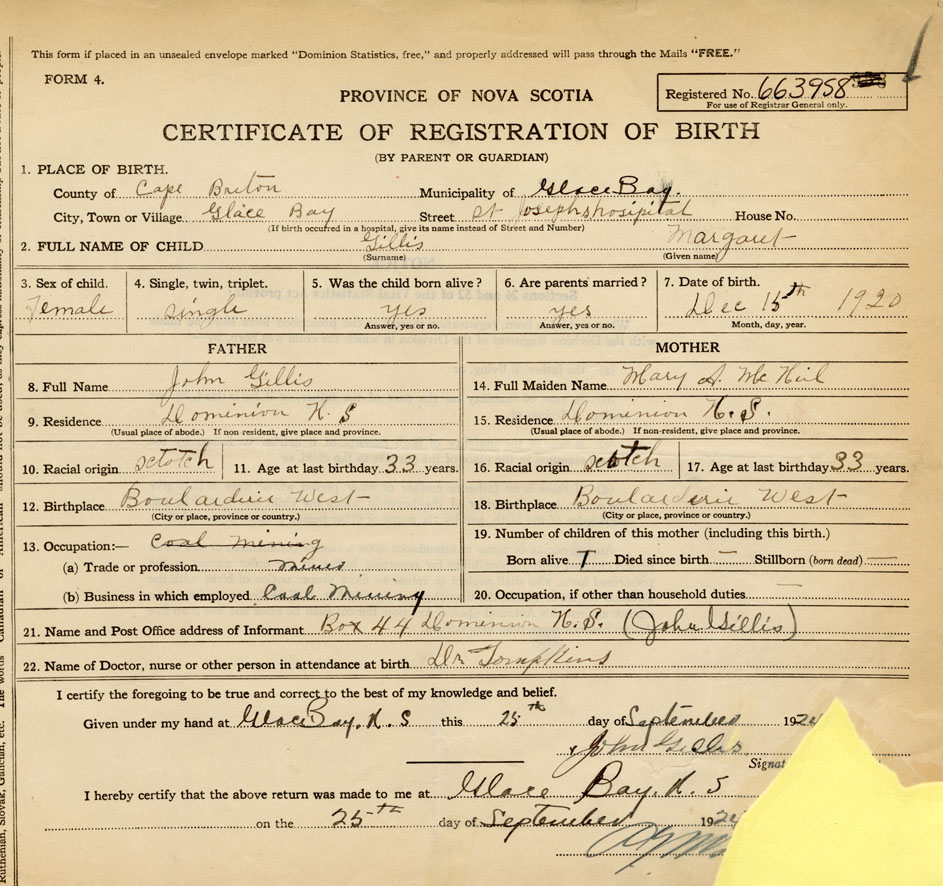 This form if placed in an unsealed envelope marked "Dominion Statistics, free," and properly addressed will pass through the Mails "FREE."
FORM 4.
Registered No. 663958
For use of Registrar General only.
PROVINCE OF NOVA SCOTIA
CERTIFICATE OF REGISTRATION OF BIRTH
(BY PARENT OR GUARDIAN)
1. PLACE OF BIRTH.
County of Cape Breton Municipality of Glace Bay.
City, Town or Village Glace Bay Street St Josephs hosipital House No.
(If birth occurred in a hospital, give its name instead of Street and Number)
2. FULL NAME OF CHILD Gillis Margaret
(Surname) (Given name)
3. Sex of child. 4. Single, twin, triplet. 5. Was the child born alive? 6. Are parents married? 7. Date of birth.
Female single yes yes Dec 15th 1920
Answer, yes or no. Answer, yes or no. Month, day, year.
FATHER
8. Full Name John Gillis
9. Residence Dominion N. S
(Usual place of abode.) If non-resident, give place and province.
10. Racial origin sctotch 11. Age at last birthday 33 years.
12. Birthplace Boulardrie West
(City or place, province or country.)
13. Occupation:— Coal mining
(a) Trade or profession miner
(b) Business in which employed Coal Mining
MOTHER
14. Full Maiden Name Mary A. Mc Neil
15. Residence Dominion N. S.
(Usual place of abode.) If non-resident, give place and province.
16. Racial origin scotch 17. Age at last birthday 33 years.
18. Birthplace Boularderie West
(City or place, province or country.)
19. Number of children of this mother (including this birth.)
Born alive Died since birth — Stillborn (born dead) —
20. Occupation, if other than household duties —
21. Name and Post Office address of Informant Box 44 Dominion N. S. (John Gillis)
22. Name of Doctor, nurse or other person in attendance at birth Dr Tompkins
I certify the foregoing to be true and correct to the best of my knowledge and belief.
Given under my hand at Glace Bay, N. S this 25th day of September 192
John Gillis
Signat
I hereby certify that the above return was made to me at Glace Bay, N. S
on the 25th day of September 192
Ruthenian, Slovak, Galician, etc. The words Canadian or American should not be used, as they express